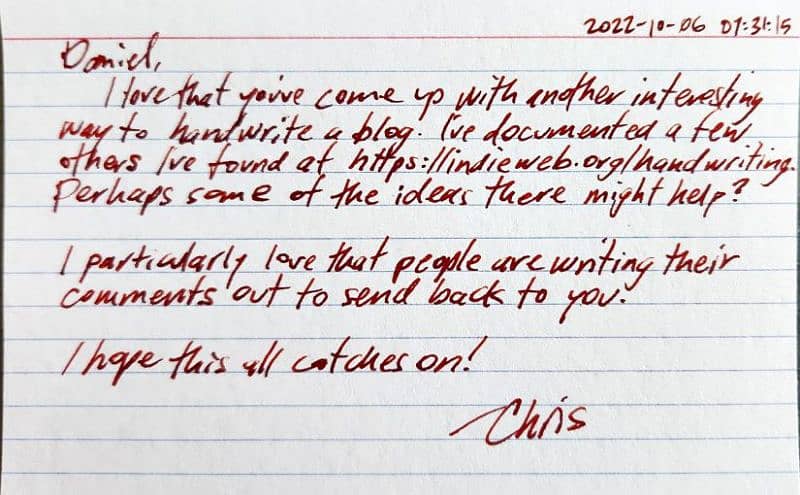 2022-10-06 07:31:15
Daniel,
I love that you've come up with another interesting
way to handwrite a blog. I've documented a few
others I've found at https://indieweb.org/handwriting.
Perhaps some of the ideas there might help?
I particularly love that people are writing their
comments out to send back to you.
I hope this all catches on!
Chris